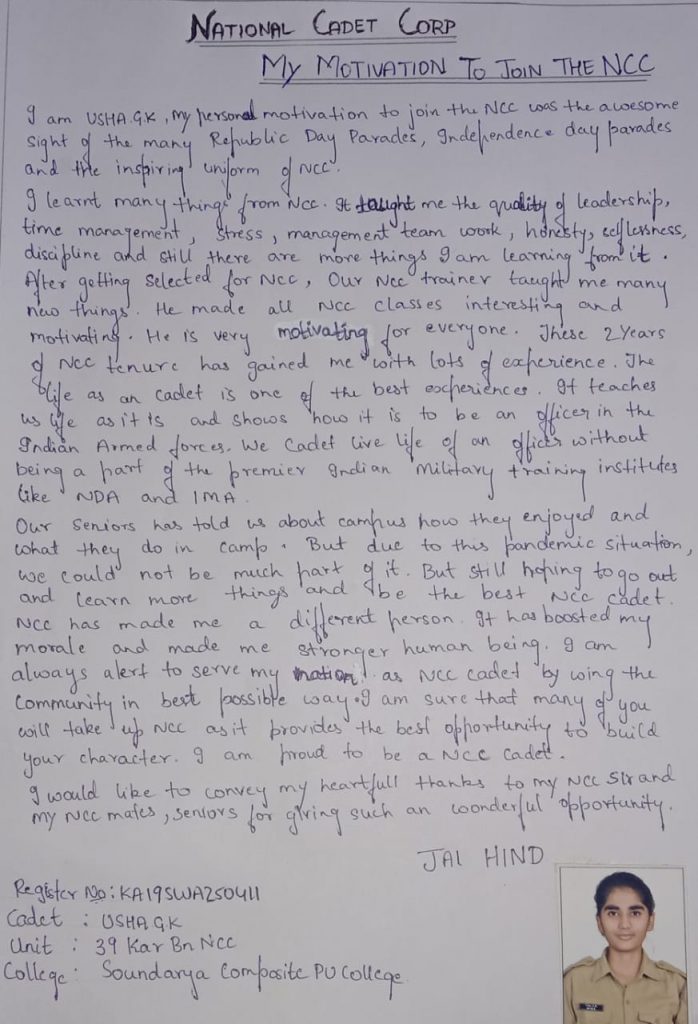 NATIONAL CADET CORP
MY MOTIVATION TO JOIN THE NCC
I am USHA.G.K, my personal motivation to join the NCC was the awesome
sight of the many Republic Day Parades, Independence day parades
and the inspiring uniform of NCC.
I learnt many things from NCC. It taught me the quality of leadership,
time management, stress, management team work, honesty, selflessness,
discipline and still there are more things I am learning from it.
After getting selected for NCC, Our NCC trainer taught me many
new things. He made all NCC classes interesting and
motivating. He is very motivating for everyone. These 2 Years
of NCC tenure has gained me with lots of experience. The
life as an cadet is one of the best experiences. It teaches
us life as it is and shows how it is to be an officer in the
Indian Armed forces. We Cadet live life of an officer without
being a part of the premier Indian military training institutes
like NDA and IMA.
Our Seniors has told us about campus how they enjoyed and
what they do in camp. But due to this pandemic situation,
we could not be much part of it. But still hoping to go out
and learn more things and be the best NCC cadet.
NCC has made me a different person. It has boosted my
morale and made me stronger human being. I am
always alert to serve my nation as NCC cadet by wing the
community in best possible way. I am sure that many of you
will take up NCC as it provides the best opportunity to build
your character. I am proud to be a NCC Cadet.
I would like to convey my heartfull thanks to my NCC Sir and
my NCC mates, seniors for giving such an woonderful opportunity.
JAI HIND
Register No: KA19SWA250411
Cadet : USHA G.K
Unit : 39 Kar Bn NCC
College : Soundarya Composite PU College.